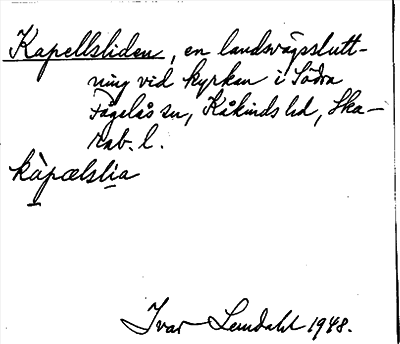 Kapellsliden, en landsvägsslutt-
ning vid kyrkan i Södra
Fågelås sn, Kåkinds hd, Ska-
rab. l.
kàpælslia
Ivar Lundahl 1948.